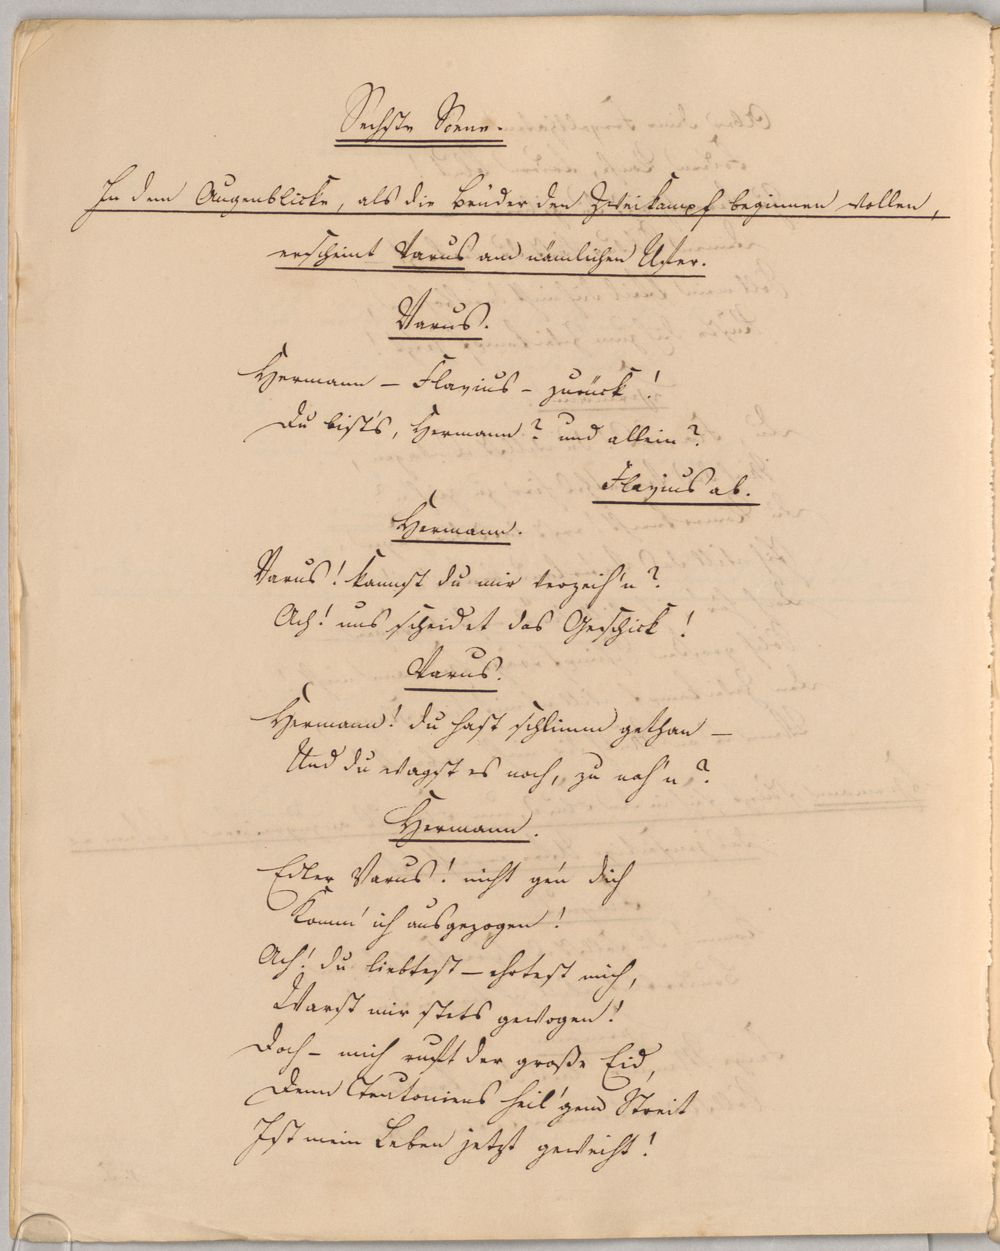 Sechste Scene.
In dem Augenblicke, als die Brüder den Zweikampf beginnen wollen,
erscheint Varus am nämlichen Ufer.
Varus.
Hermann – Flavius – zurück!
Du bist's, Hermann? und allein?
Flavius ab.
Hermann.
Varus! kannst du mir verzeih'n?
Ach! uns scheidet das Geschick!
Varus.
Hermann! du hast schlimm gethan –
Und du wagst es noch, zu nah'n?
Hermann.
Edler Varus! nicht gen dich
Komm' ich ausgezogen!
Ach! du liebtest – ehrtest mich,
Warst mir stets gewogen!
Doch – mich ruft der große Eid,
Denn Teutoniens heil'gem Streit
Ist mein Leben jetzt geweiht!